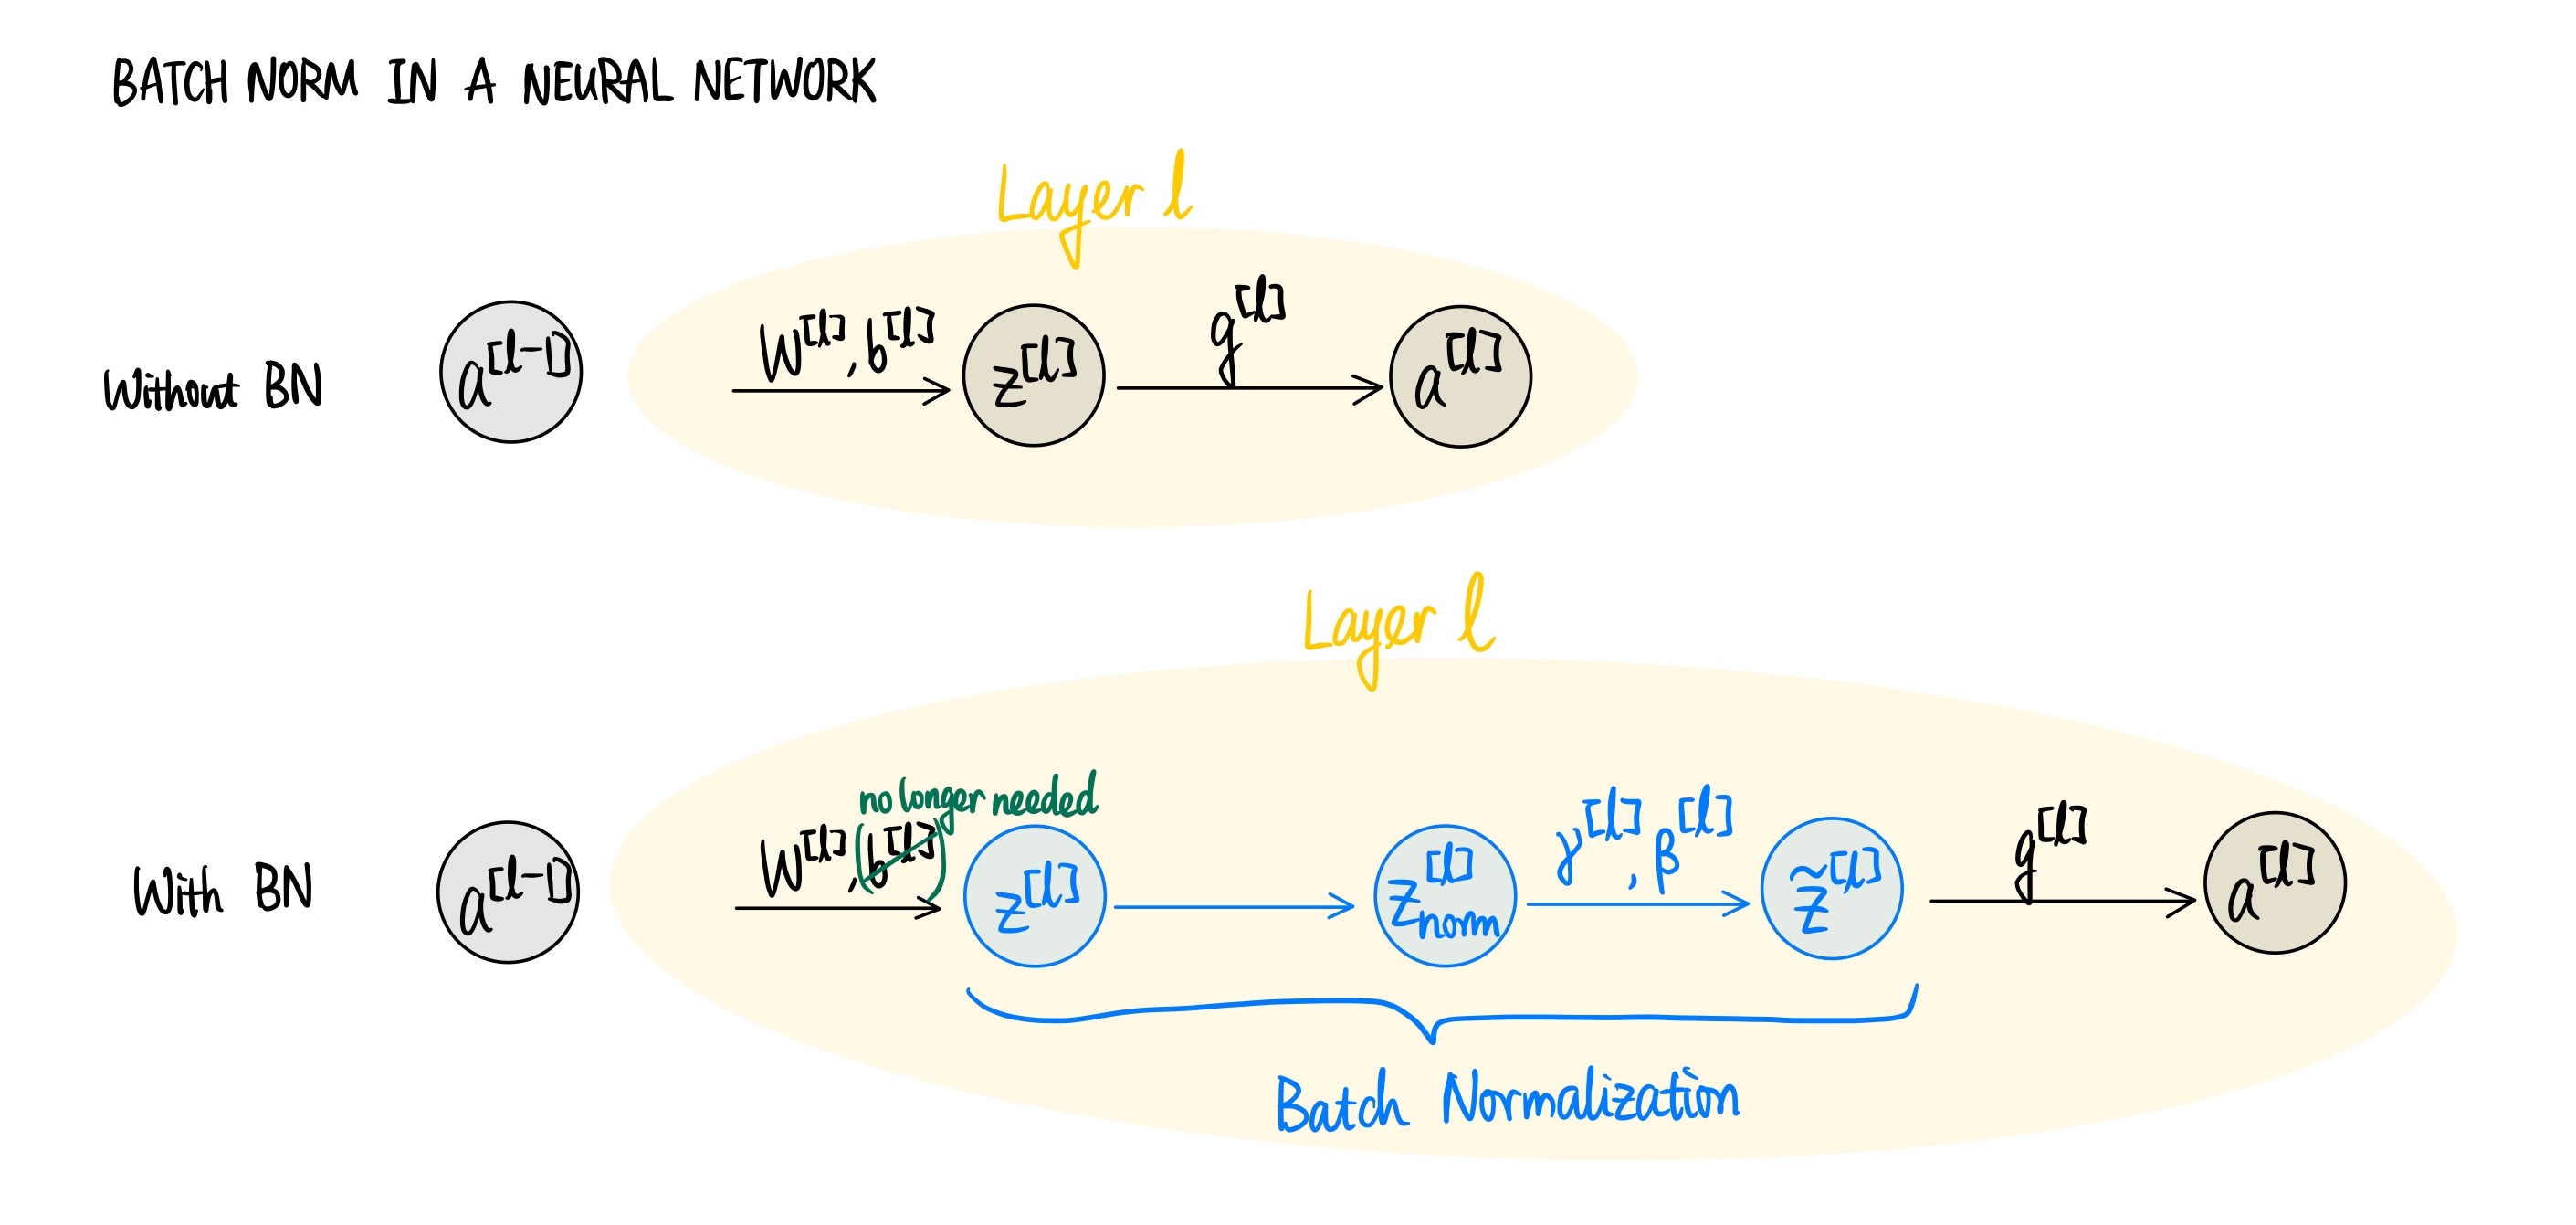 BATCH NORM IN A NEURAL NETWORK
Layer l
Without BN
a^[l-1]
W^[l], b^[l]
z^[l]
g^[l]
a^[l]
Layer l
With BN
a^[l-1]
no longer needed
W^[l], (b^[l])
z^[l]
z^[l]_norm
γ^[l], β^[l]
z̃^[l]
g^[l]
a^[l]
Batch Normalization